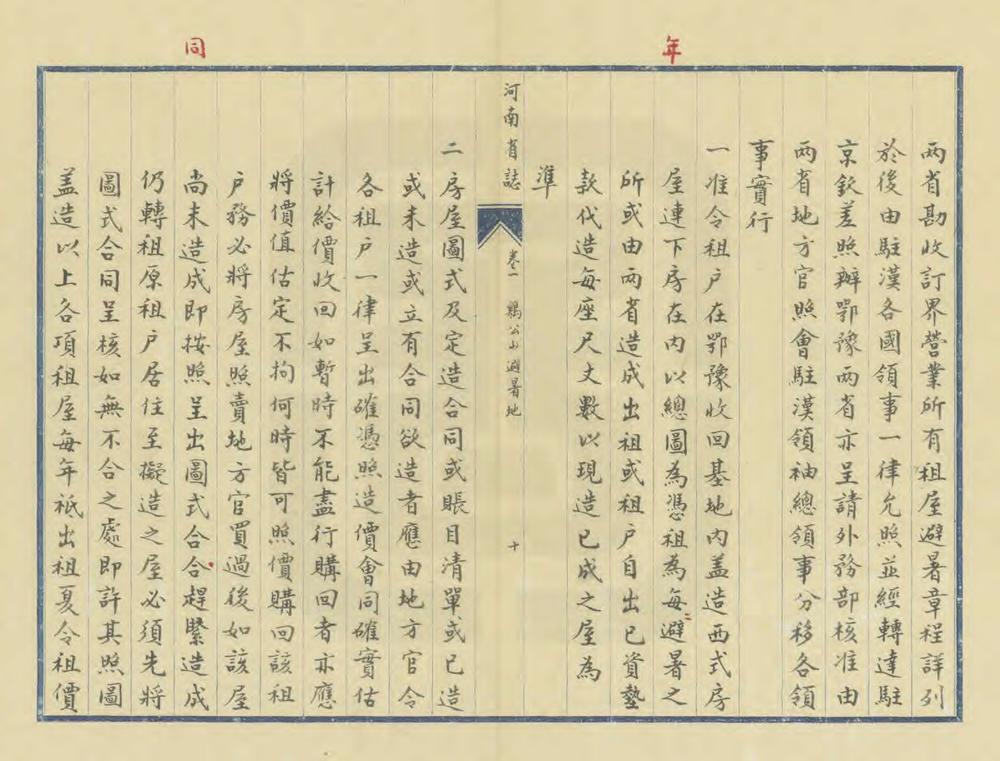 年
两省勘收訂界營業所有租屋避暑章程詳列
於後由駐漢各國領事一律允照並經轉達駐
京欽差照辦鄂豫两省亦呈請外務部核准由
两省地方官照會駐漢領袖總領事分移各領
事實行
一准令租户在鄂豫收回基地内盖造西式房
屋連下房在内以總圖為憑租為每避暑之
所或由两省造成出租或租户自出已資墊
款代造每座尺丈數以現造已成之屋為
準
河南省誌
卷一 鷄公山避暑地
十
同
二房屋圖式及定造合同或賬目清單或已造
或未造或立有合同欲造者應由地方官令
各租户一律呈出確憑照造價會同確實估
計給價收回如暫時不能盡行購回者亦應
將價值估定不拘何時皆可照價購回該租
户務必將房屋照賣地方官買過後如該屋
尚未造成即按照呈出圖式合合趕緊造成
仍轉租原租户居住至擬造之屋必須先將
圖式合同呈核如無不合之處即許其照圖
盖造以上各項租屋每年祗出租夏令租價